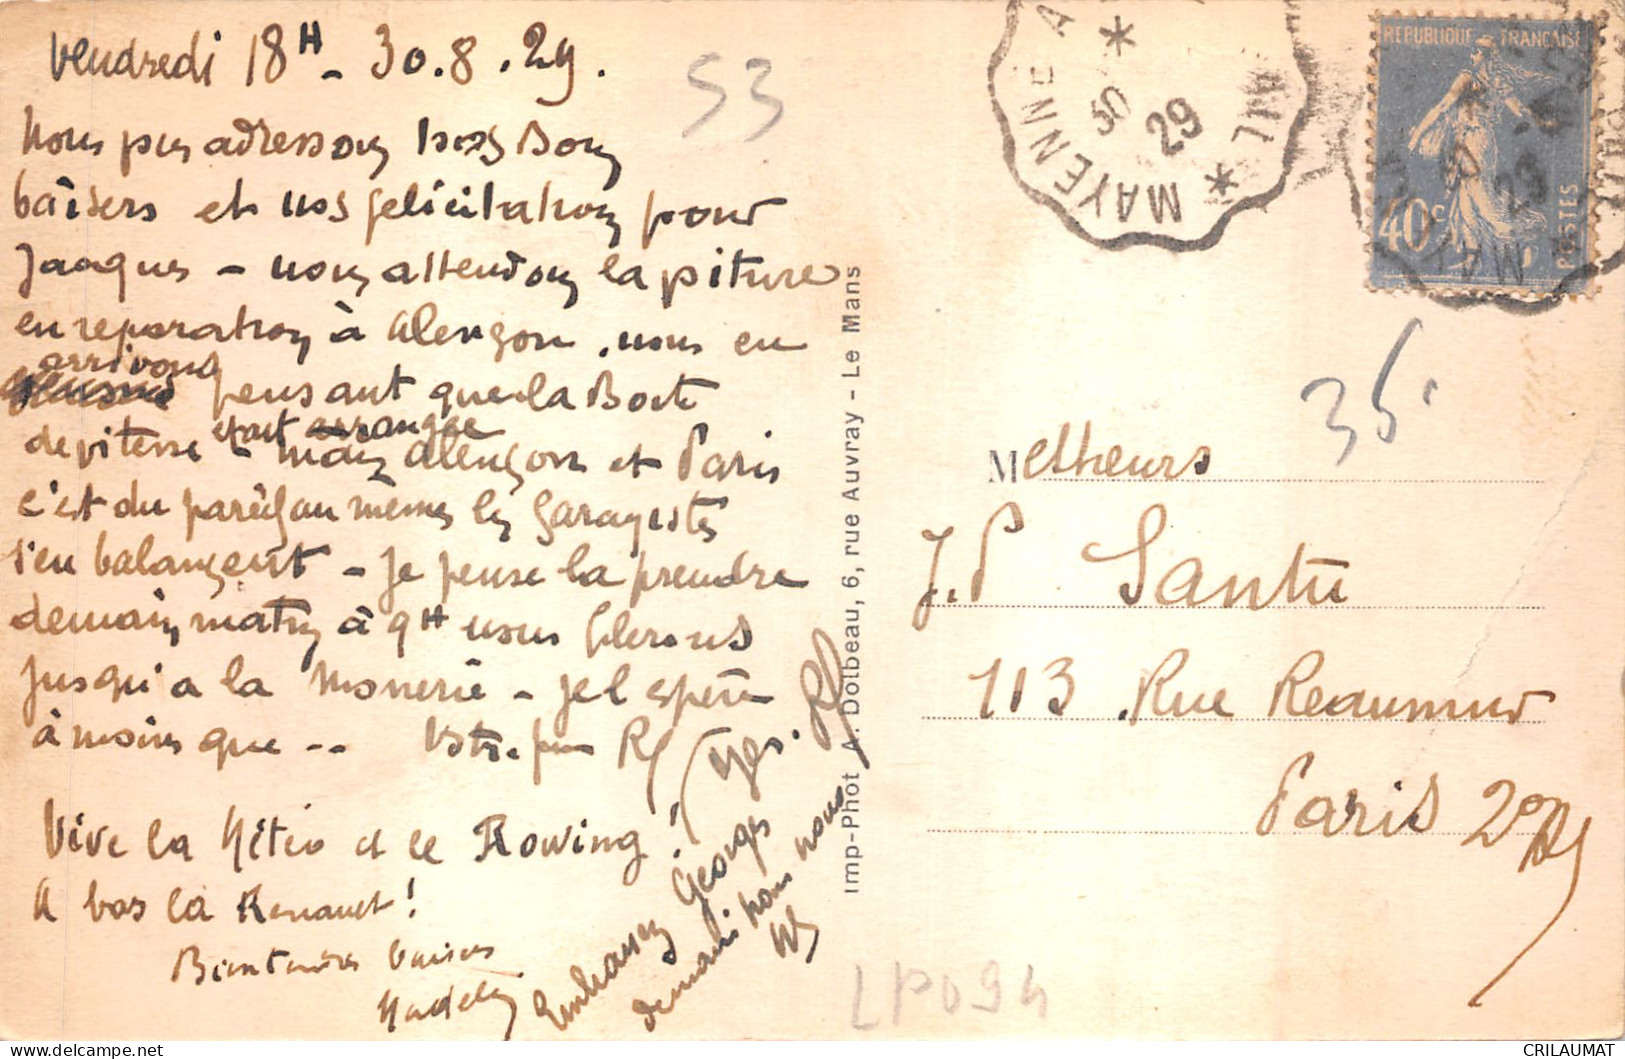 Vendredi 18H - 30.8.29.
Nous vous adressons nos bons
baisers et nos félicitations pour
Jacques - nous attendons la voiture
en réparation à Alençon. nous en
arrivons pensant que la Boite
de vitesse était arrangée - mais Alençon et Paris
c'est du pareil au même les garagistes
s'en balançent - je pense la prendre
demain matin à 9H nous filerons
jusqu'à la
- je l'espère
à moins que -- Votre
Vive la Météo et le Rowing !
A bas la Renault !
baisers
Georges
demain nous
53
MAYENNE A
30
29
MAYENNE
REPUBLIQUE FRANÇAISE
40c
POSTES
29
35
Imp-Phot A. Dolbeau, 6, rue Auvray - Le Mans
M
J.P Santu
113 Rue Reaumur
Paris 2e
LP094
CRILAUMAT